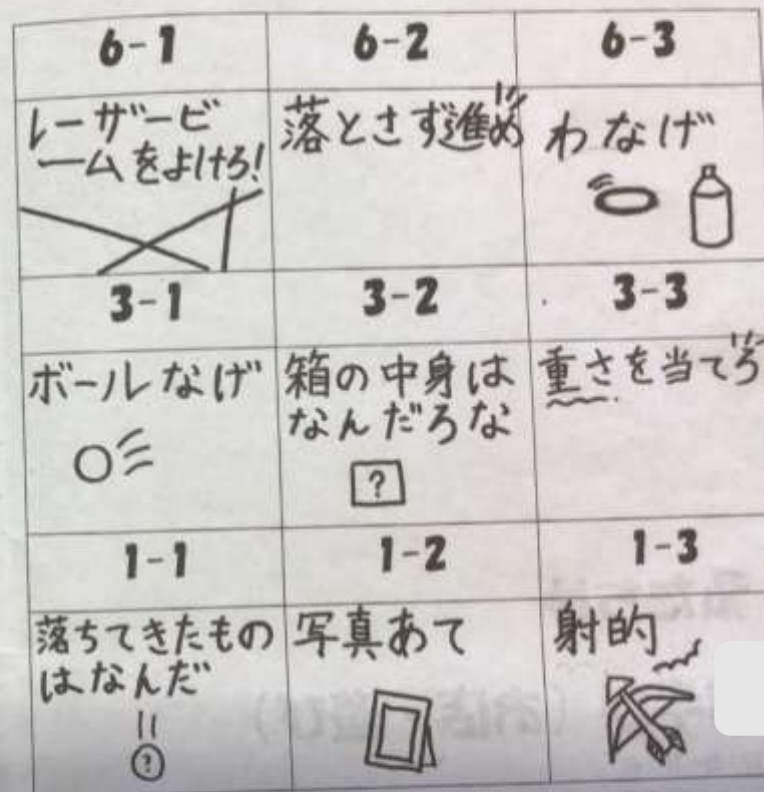 6-1 6-2 6-3
レーザービ
ームをよけろ!
落とさず進め
わなげ
3-1 3-2 3-3
ボールなげ
箱の中身は
なんだろな
?
重さを当てろ
1-1 1-2 1-3
落ちてきたもの
はなんだ
?
写真あて
射的